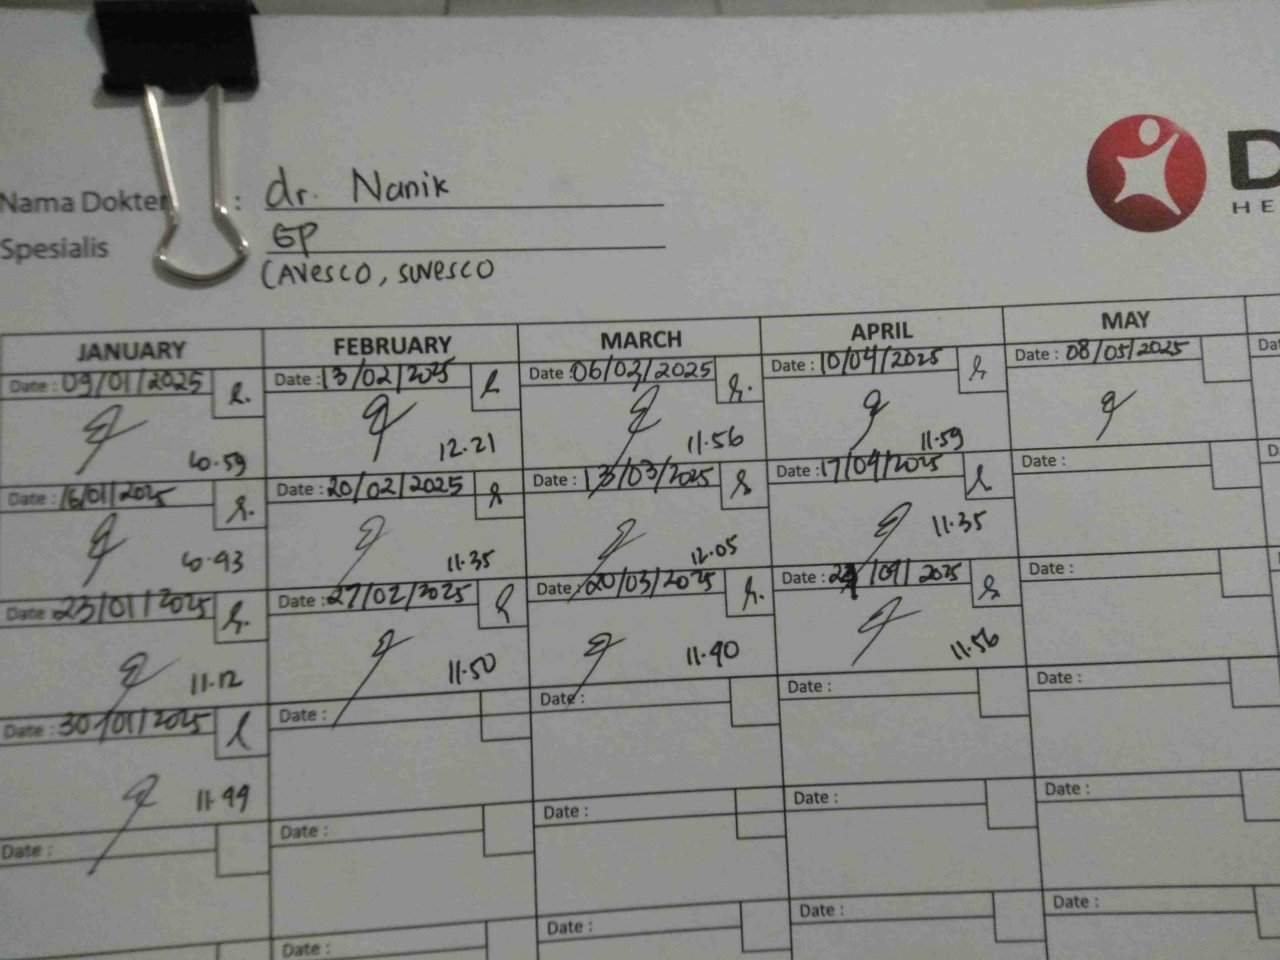 Nama Dokter : dr. Nanik
Spesialis GP
CAVESCO, SUVESCO
D
HE
JANUARY FEBRUARY MARCH APRIL MAY
Date : 09/01/2025 Date : 13/02/2025 Date : 06/03/2025 Date : 10/04/2025 Date : 08/05/2025 Dat
10.59 12.21 11.56 11.59
Date : 16/01/2025 Date : 20/02/2025 Date : 13/03/2025 Date : 17/04/2025 Date : D
10.43 11.35 12.05 11.35
Date : 23/01/2025 Date : 27/02/2025 Date : 20/03/2025 Date : 24/04/2025 Date :
11.12 11.50 11.40 11.56
Date : 30/01/2025 Date : Date : Date : Date :
11.49
Date : Date : Date : Date : Date :
Date : Date : Date : Date :